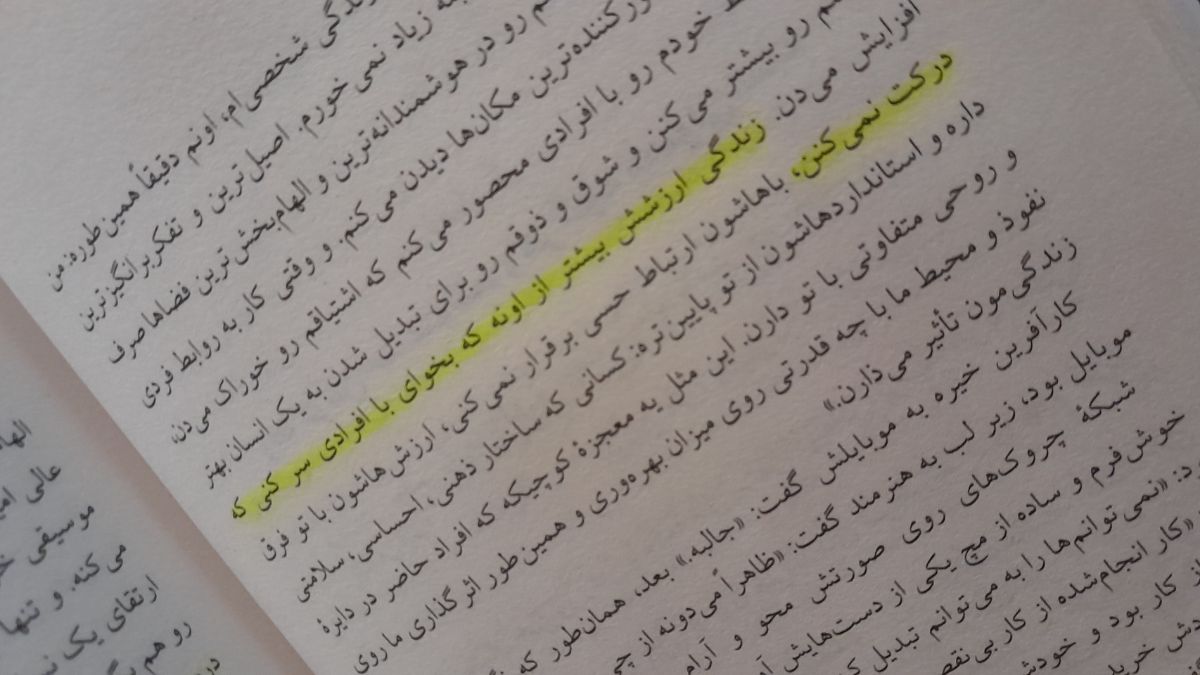 شخصی‌ام، اونم دقیقاً همین‌طوره: من
زیاد نمی‌خورم. اصیل‌ترین و تفکربرانگیزترین
رو در هوشمندانه‌ترین و الهام‌بخش‌ترین فضاها صرف
مکان‌ها دیدن می‌کنم. و وقتی کار به روابط فردی
خودم رو با افرادی محصور می‌کنم که اشتیاقم رو خوراک می‌دن،
رو بیشتر می‌کنن و شوق و ذوقم رو برای تبدیل شدن به یک انسان بهتر
افزایش می‌دن. زندگی ارزشش بیشتر از اونه که بخوای با افرادی سر کنی که
درکت نمی‌کنن، باهاشون ارتباط حسی برقرار نمی‌کنی، ارزش‌هاشون با تو فرق
داره و استانداردهاشون از تو پایین‌تره: کسانی که ساختار ذهنی، احساسی، سلامتی
و روحی متفاوتی با تو دارن. این مثل یه معجزهٔ کوچیکه که افراد حاضر در دایرهٔ
نفوذ و محیط ما با چه قدرتی روی میزان بهره‌وری و همین‌طور اثرگذاری ما روی
زندگی‌مون تأثیر می‌ذارن.»
کارآفرین خیره به موبایلش گفت: «جالبه.» بعد، همان‌طور که
موبایل بود، زیر لب به هنرمند گفت: «ظاهراً می‌دونه از چی
شبکهٔ چروک‌های روی صورتش محو و آرام
خوش‌فرم و ساده از مچ یکی از دست‌هایش
«نمی‌توانم‌ها را به می‌توانم تبدیل
«کار انجام‌شده از کار بی‌نقص
کار بود و خودش
عالی
موسیقی
می‌کنه. و تنها
ارتقای یک
رو هم